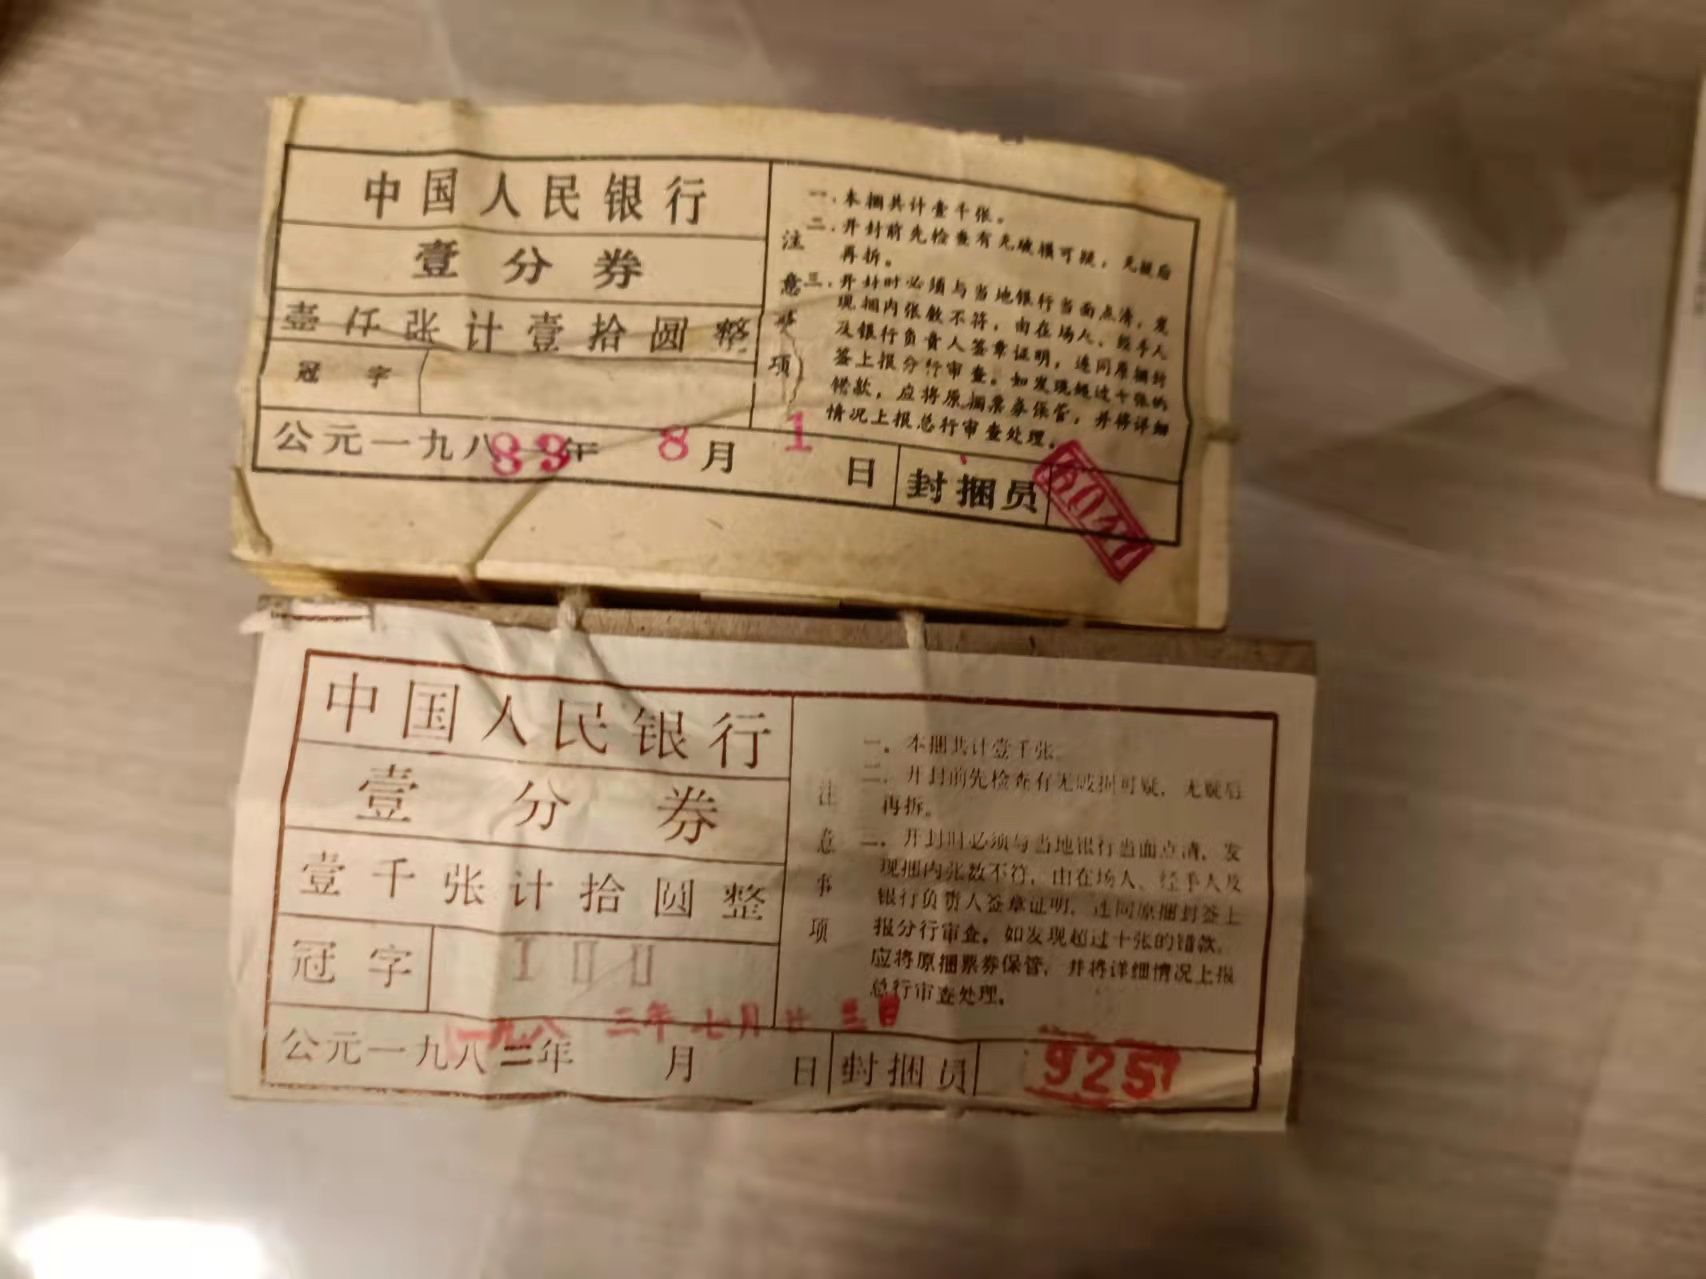 中国人民银行
壹分券
壹仟张计壹拾圆整
冠字
公元一九八83年8月1日
封捆员
注意事项
一.本捆共计壹千张。
二.开封前先检查有无破损可疑，无疑后
再拆。
三.开封时必须与当地银行当面点清，发
现捆内张数不符，由在场人、经手人
及银行负责人签章证明，连同原捆封
签上报分行审查。如发现超过十张的
错款，应将原捆票券保管，并将详细
情况上报总行审查处理。
中国人民银行
壹分券
壹千张计拾圆整
冠字
公元一九八二年月日
一九八二年七月廿三日
封捆员
9257
注意事项
一。本捆共计壹千张
二.开封前先检查有无破损可疑，无疑后
再拆。
开封时必须与当地银行当面点清，发
现捆内张数不符，由在场人、经手人及
银行负责人签章证明，连同原捆封签上
报分行审查，如发现超过十张的错款，
应将原捆票券保管，并将详细情况上报
总行审查处理。